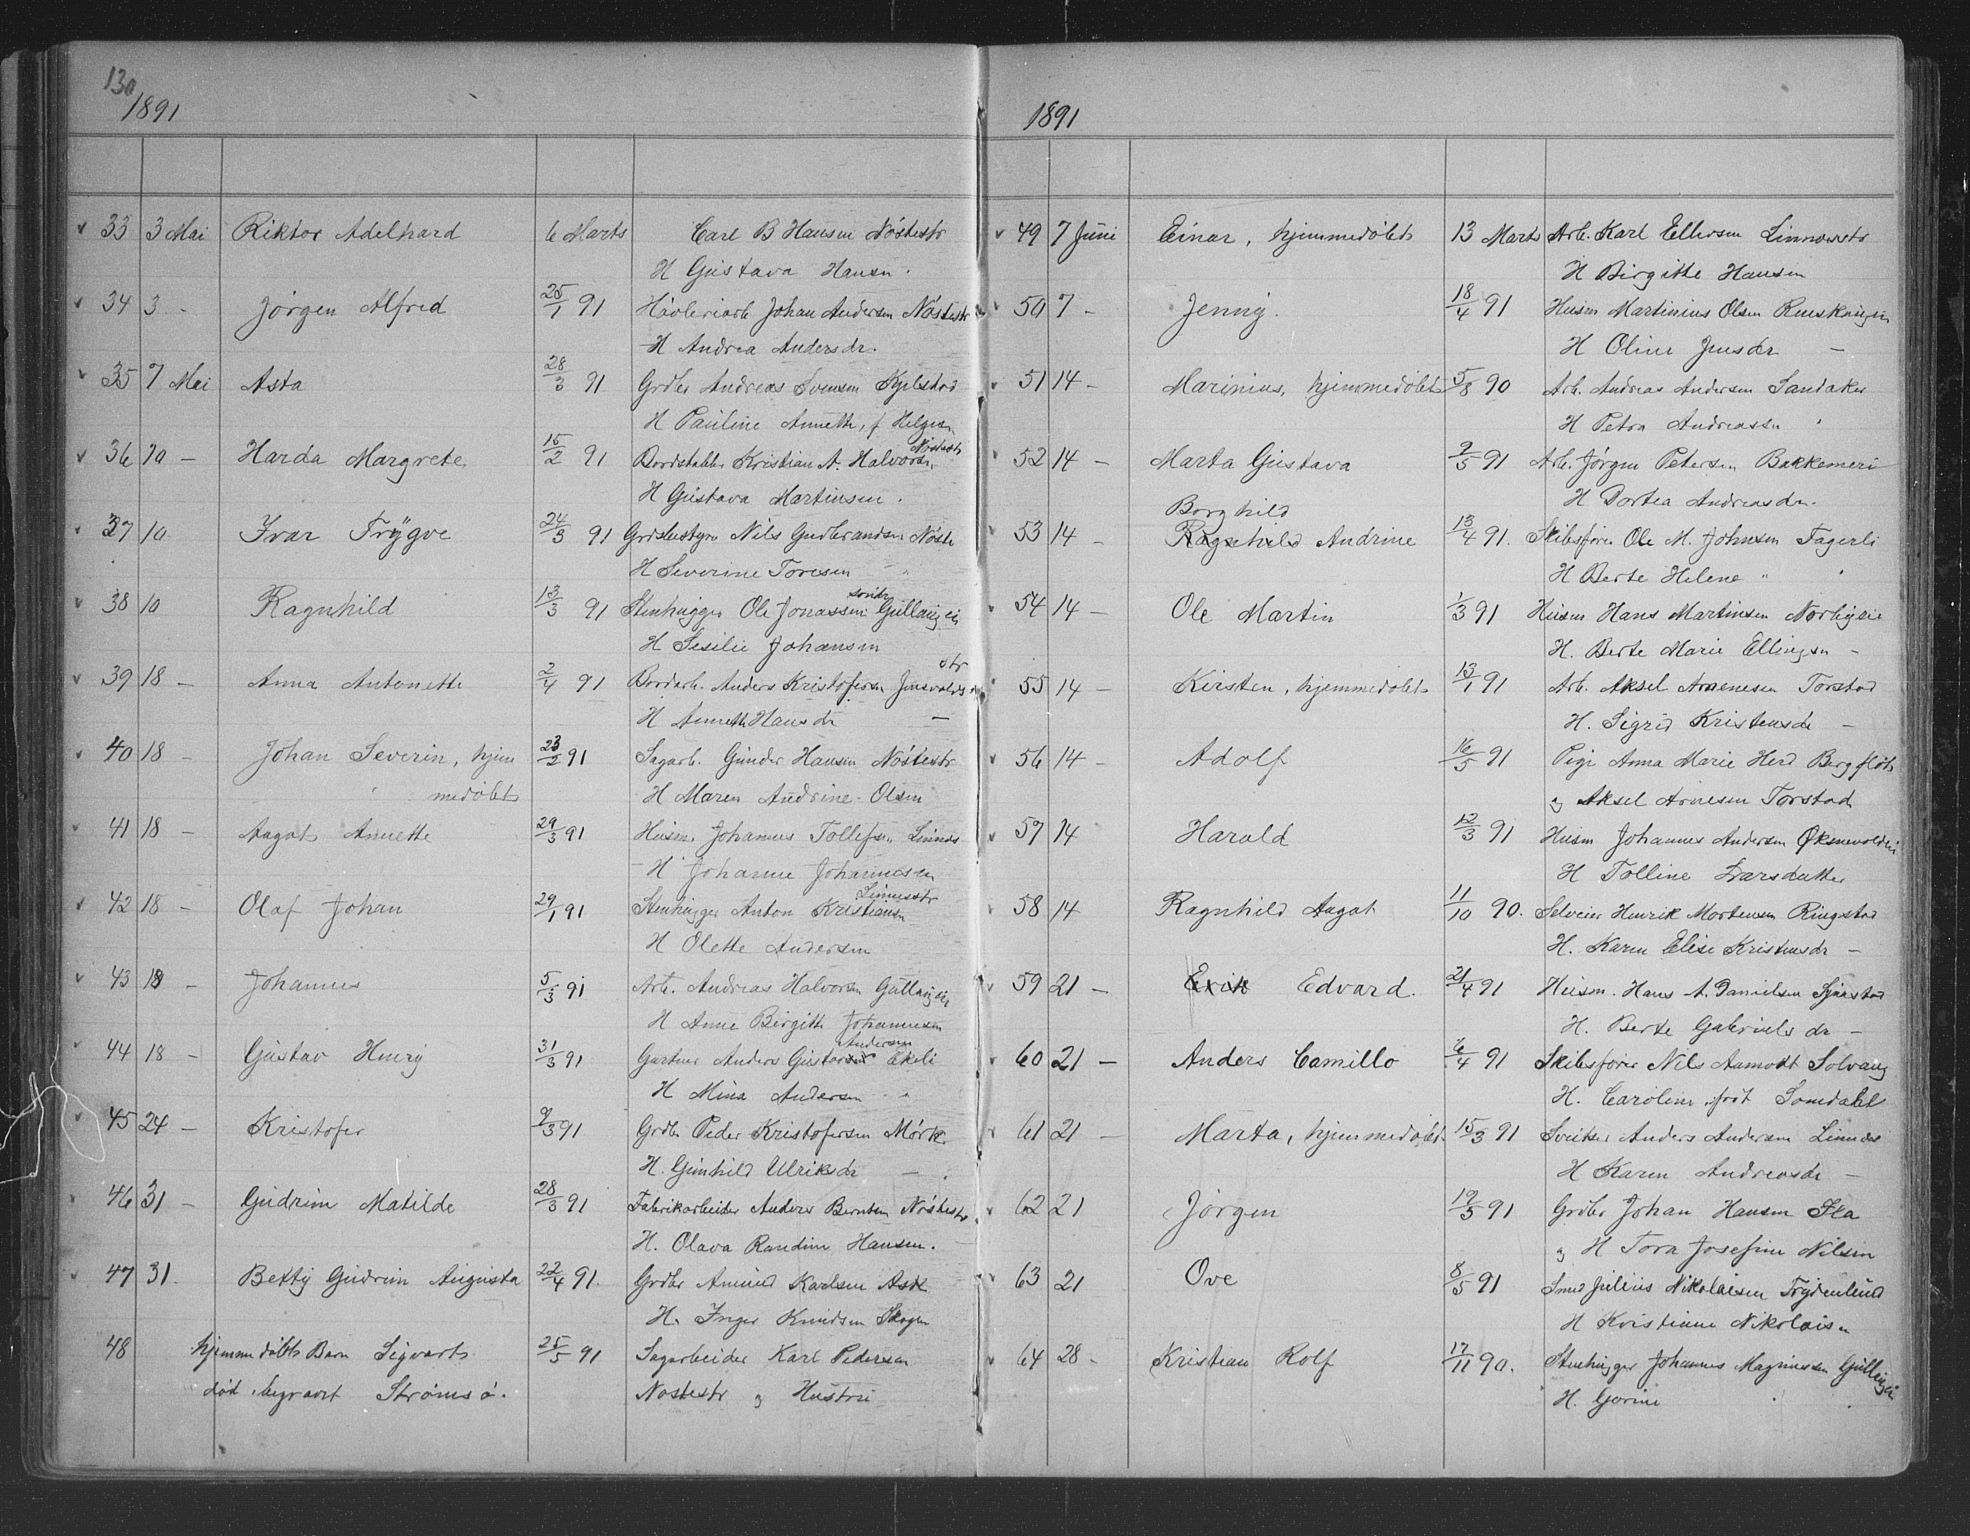 130
1891
33 3 Mai Riktor Adelhard 6 Marts Carl B Hansen Nøstestr
H Gustava Hansen.
34 3 - Jørgen Alfred 25/1 91 Høvleriarb Johan Andersen Nøstestr
H Andrea Andersdr.
35 7 Mai Asta 28/3 91 Grdbr Andreas Svensen Kjelstad
H Pauline Annette, f Helgesn
36 10 - Harda Margrete 15/2 91 Bordstabler Kristian A. Halvorsn Nøstestr
H Gustava Martinsen.
37 10 Ivar Trygve 24/3 91 Grdsbestyrer Nils Gudbrandsen Nøste
H Severine Toresen
38 10 Ragnhild 13/3 91 Stenhugger Ole Jonassen Gullaug eie
H Sesilie Johansen
39 18 - Anna Antonette 2/4 91 Bordarb. Anders Kristofersen Jensvolds str
H Annette Hansdr -
40 18 - Johan Severin, hjem 23/2 91 Sagarb. Gunder Hansen Nøstestr
medøbt H Maren Andrine Olsen
41 18 - Aagot Annette 29/3 91 Husm. Johannes Tollefsn. Linnes
H Johanne Johannesen
42 18 - Olaf Johan 29/1 91 Stenhugger Anton Kristiansen Linnesstr
H Olette Andersen
43 18 - Johannes 5/3 91 Arb. Andreas Halvorsen Gullaug eie
H Anne Birgitte Johannesen
44 18 - Gustav Henry 31/3 91 Gartner Anders Gustavsen Andersen Ekeli
H Mina Andersen
45 24 - Kristofer 9/3 91 Grdbr Peder Kristofersen Mørk
H. Gunhild Ulriksdr -
46 31 - Gudrun Matilde 28/3 91 Fabrikarbeider Anders Berntsen Nøstestr
H. Olava Randine Hansen. -
47 31. Betty Gudrun Augusta 22/4 91. Grdbr Amund Karlsen Ask
H. Inger Knudsen Skogen
48 hjemmedøbt Barn Sigvart 25/5 91 Sagarbeider Karl Pedersen
død, begravet Strømsø. Nøstestr og Hustru
1891
49 7 Juni Einar, hjemmedøbt 13 Marts Arb. Karl Ellersen Linnesstr
H Birgitte Hansen
50 7 - Jenny. 18/4 91 Husm Martinius Olsen
H Oline Jensdr -
51 14 - Marinius, hjemmedøbt 5/8 90 Arb. Andreas Andersen Sandaker
H Petra Andreassn
52 14 - Marta Gustava 9/5 91 Arb. Jørgen Petersen Bakkemeri
H Dortea Andreasdr.
Borghild
53 14 - Ragnhild Andrine 13/4 91. Skibsfører Ole M. Johnsen Fagerli
H Berte Helene "
54 14 - Ole Martin 1/3 91 Husm Hans Martinsen Norbyeie
H. Berte Marie Ellingsn -
55 14 - Kirsten, hjemmedøbt 13/1 91 Arb. Aksel Arnesen Torstad
H. Sigrid Kristensdr -
56 14 - Adolf 16/5 91 Pige Anna Marie Herd Bergfløt
og Aksel Arnesen Torstad
57 14 Harald 12/3 91 Husm Johannes Andersen Øksnevoldeie
H Tolline Larsdatter
58 14 Ragnhild Aagot 11/10 90. Selveier Henrik Mortensen Ringstad
H. Karen Elise Kristensdr -
59 21 - Erik Edvard. 21/4 91 Husm. Hans A. Danielsen Sjaastad
H. Berte Gabrielsdr -
60 21 - Anders Camillo 6/4 91 Skibsfører Nils Aamodt Solvang
H. Caroline, født Somdalet
61 21 - Marta, hjemmedøbt. 15/3 91 Sveitser Anders Andersen Linnes
H Karen Andreasdr -
62 21 Jørgen 19/5 91 Grdbr Johan Hansen Ila
og H Tora Josefine Nilsen
63 21 Ove 8/5 91 Smed Julius Nikolaisen Frydenlund
H Kristiane Nikolaisn
64 28 - Kristian Rolf 17/11 90. Stenhugger Johannes Magnussen Gullaugeie
H. Gorine